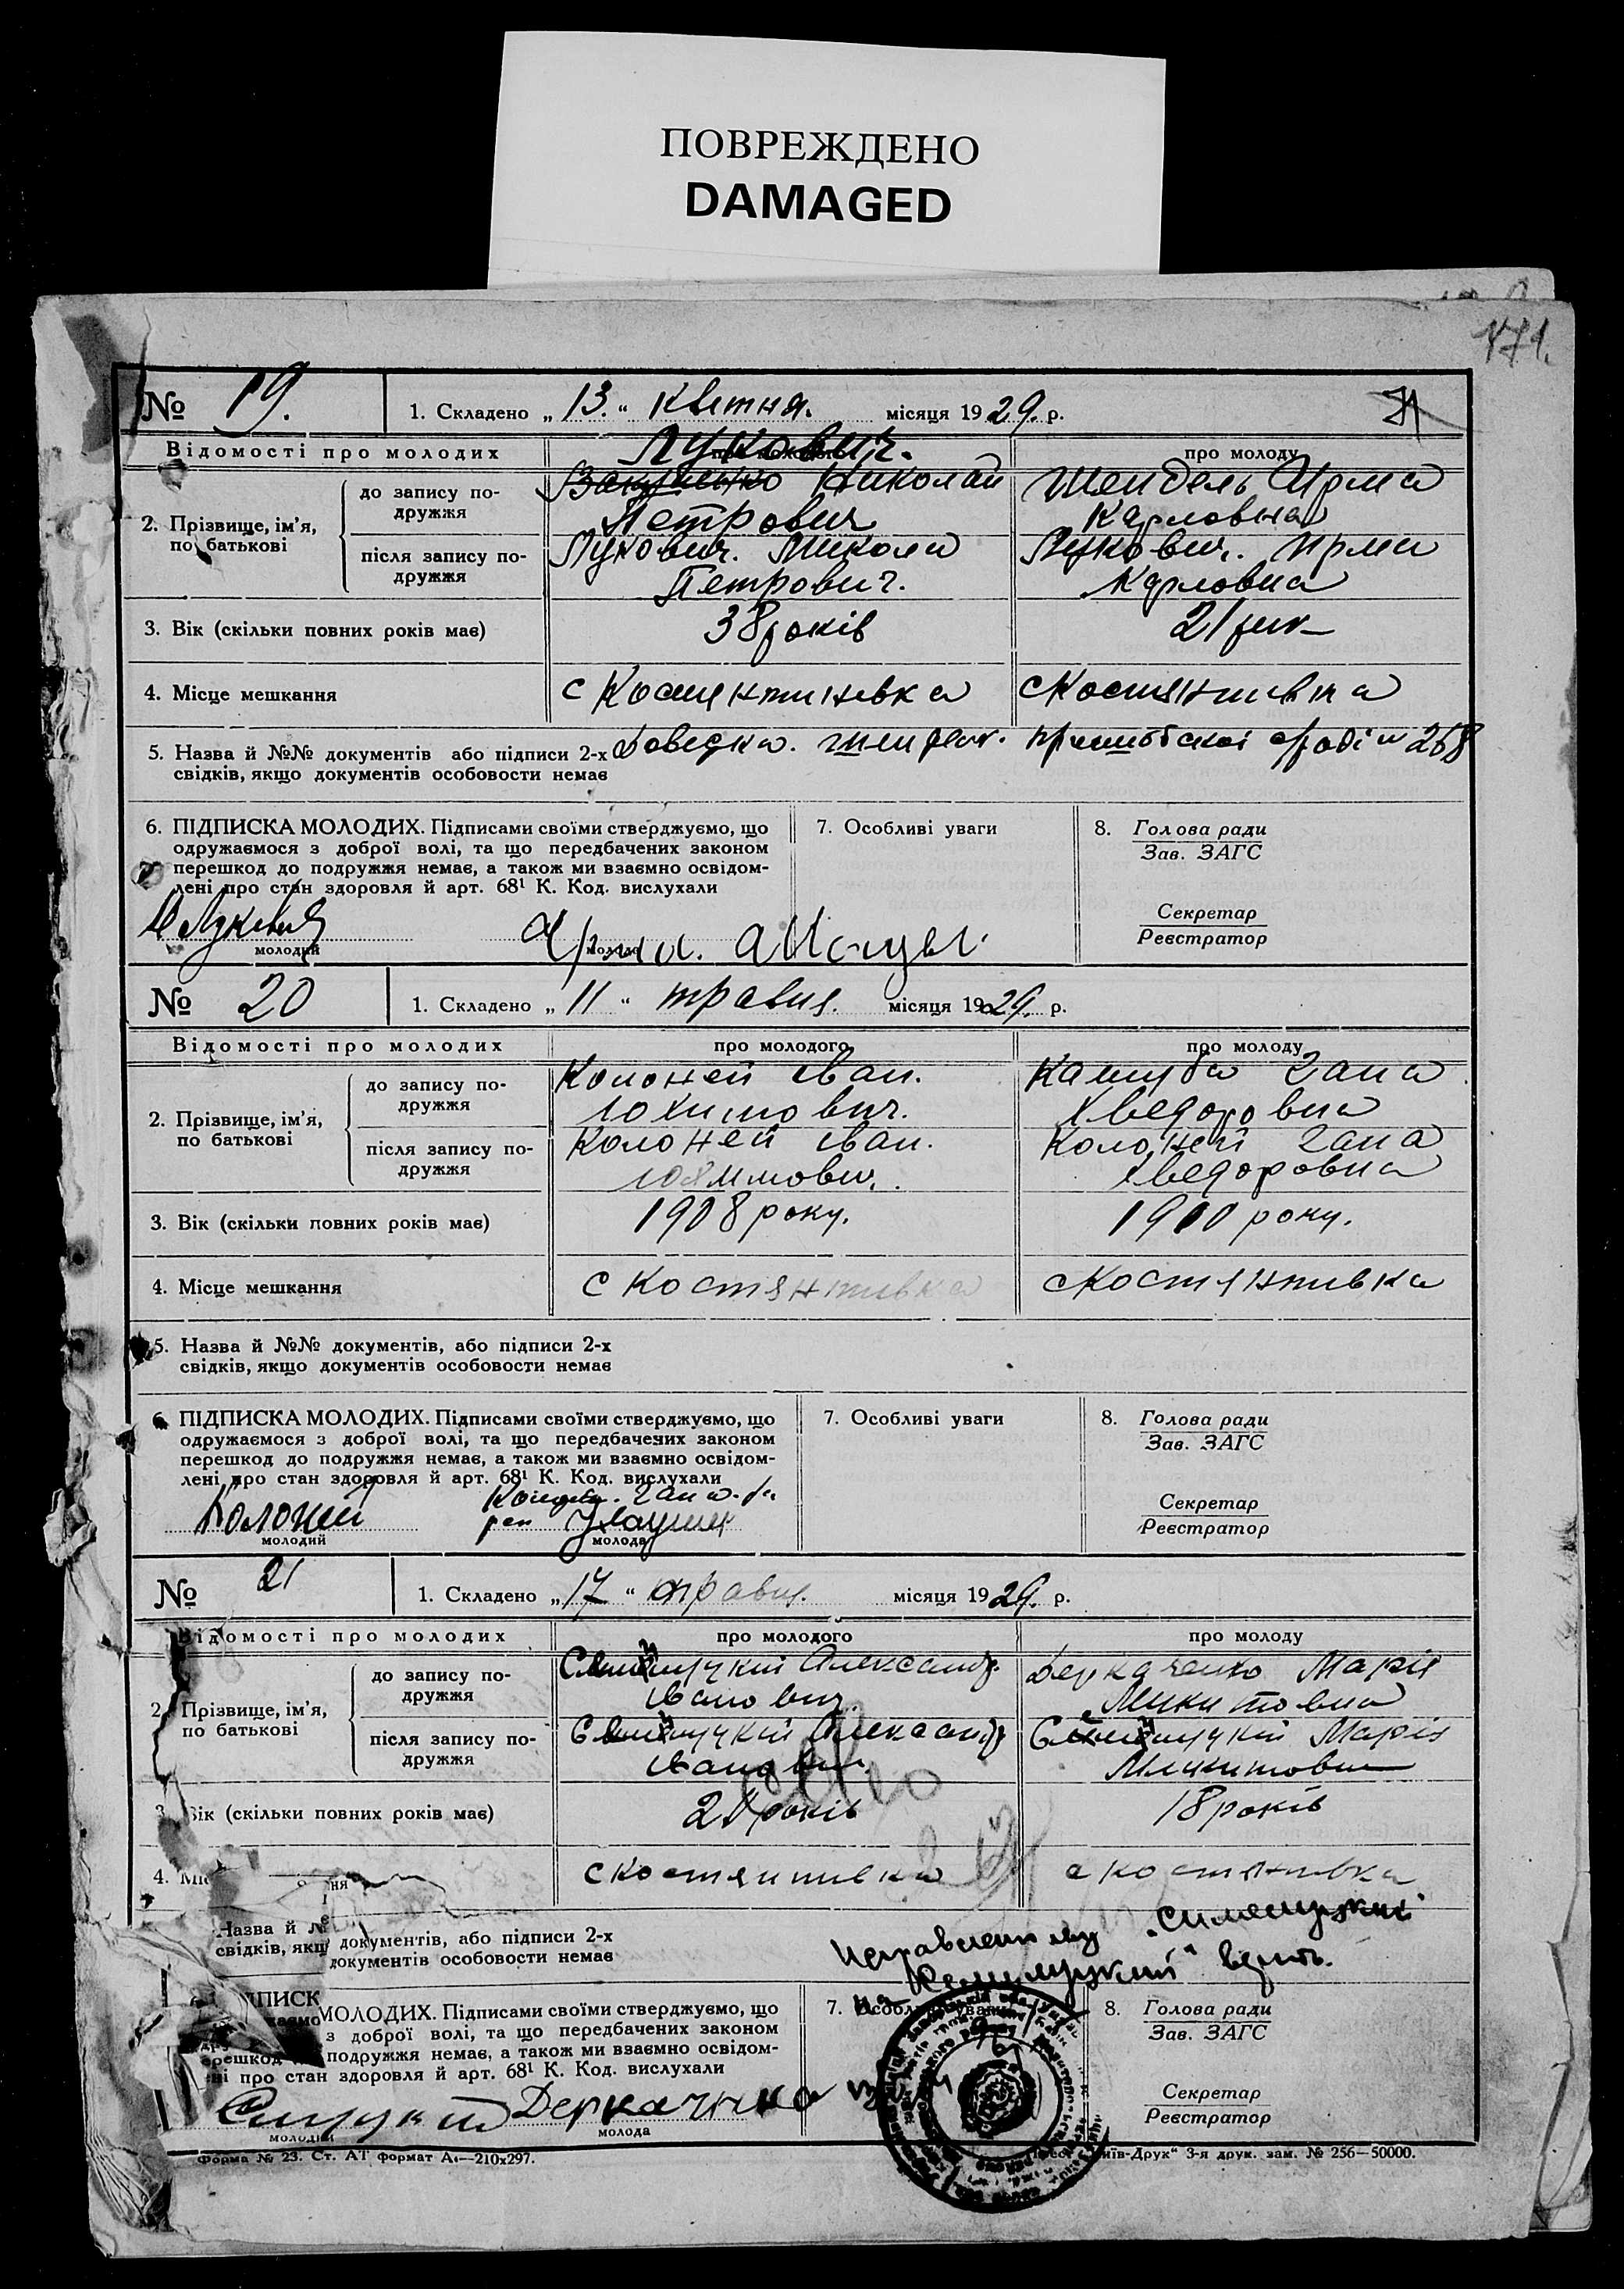 ПОВРЕЖДЕНО
DAMAGED
171.
№ 19. 1. Складено „13.“ Квітня. місяця 1929. р.
Відомості про молодих про молоду
Лукович.
2. Прізвище, ім’я, по батькові
до запису подружжя
Николай Петрович
Шендель Ирма Карловна
після запису подружжя
Лукович. Микола Петрович.
Лукович. Ирма Карловна
3. Вік (скільки повних років має) 38 років 21 рік
4. Місце мешкання с Костянтинівка с Костянтивка
5. Назва й №№ документів або підписи 2-х Доведка. ради № 268
свідків, якщо документів особовости немає
6. ПІДПИСКА МОЛОДИХ. Підписами своїми стверджуємо, що
одружаємося з доброї волі, та що передбачених законом
перешкод до подружжя немає, а також ми взаємно освідом-
лені про стан здоровля й арт. 68¹ К. Код. вислухали
7. Особливі уваги
8. Голова ради
Зав. ЗАГС
Секретар
Реєстратор
молодий молода
№ 20 1. Складено „11“ травня. місяця 1929. р.
Відомості про молодих про молодого про молоду
2. Прізвище, ім’я, по батькові
до запису подружжя
Колоней Іван. Юхимович.
Кашуба Гана Хведоровна
після запису подружжя
Колоней Іван. Юхимович.
Колоней Гана Хведоровна
3. Вік (скільки повних років має) 1908 року. 1910 року.
4. Місце мешкання с Костянтивка с Костянтивка
5. Назва й №№ документів, або підписи 2-х
свідків, якщо документів особовости немає
6. ПІДПИСКА МОЛОДИХ. Підписами своїми стверджуємо, що
одружаємося з доброї волі, та що передбачених законом
перешкод до подружжя немає, а також ми взаємно освідом-
лені про стан здоровля й арт. 68¹ К. Код. вислухали
7. Особливі уваги
8. Голова ради
Зав. ЗАГС
Секретар
Реєстратор
Колоней
молодий молода
№ 21 1. Складено „17“ травня. місяця 1929. р.
Відомості про молодих про молодого про молоду
2. Прізвище, ім’я, по батькові
до запису подружжя
Александр. Іванович
Деркаченко Марія Микитовна
після запису подружжя
Александр. Іванович
Марія Микитовна
3. Вік (скільки повних років має) років 18 років
4. с Костянтивка с Костянтивка
Назва й № документів, або підписи 2-х
свідків, якщо документів особовости немає
ПІДПИСК МОЛОДИХ. Підписами своїми стверджуємо, що
з доброї волі, та що передбачених законом
перешкод подружжя немає, а також ми взаємно освідом-
ні про стан здоровля й арт. 68¹ К. Код. вислухали
7. Особливі уваги
8. Голова ради
Зав. ЗАГС
Секретар
Реєстратор
Деркаченко
молодий молода
Форма № 23. Ст. АТ формат А₄—210х297.
Київ-Друк“ 3-я друк. зам. № 256—50000.